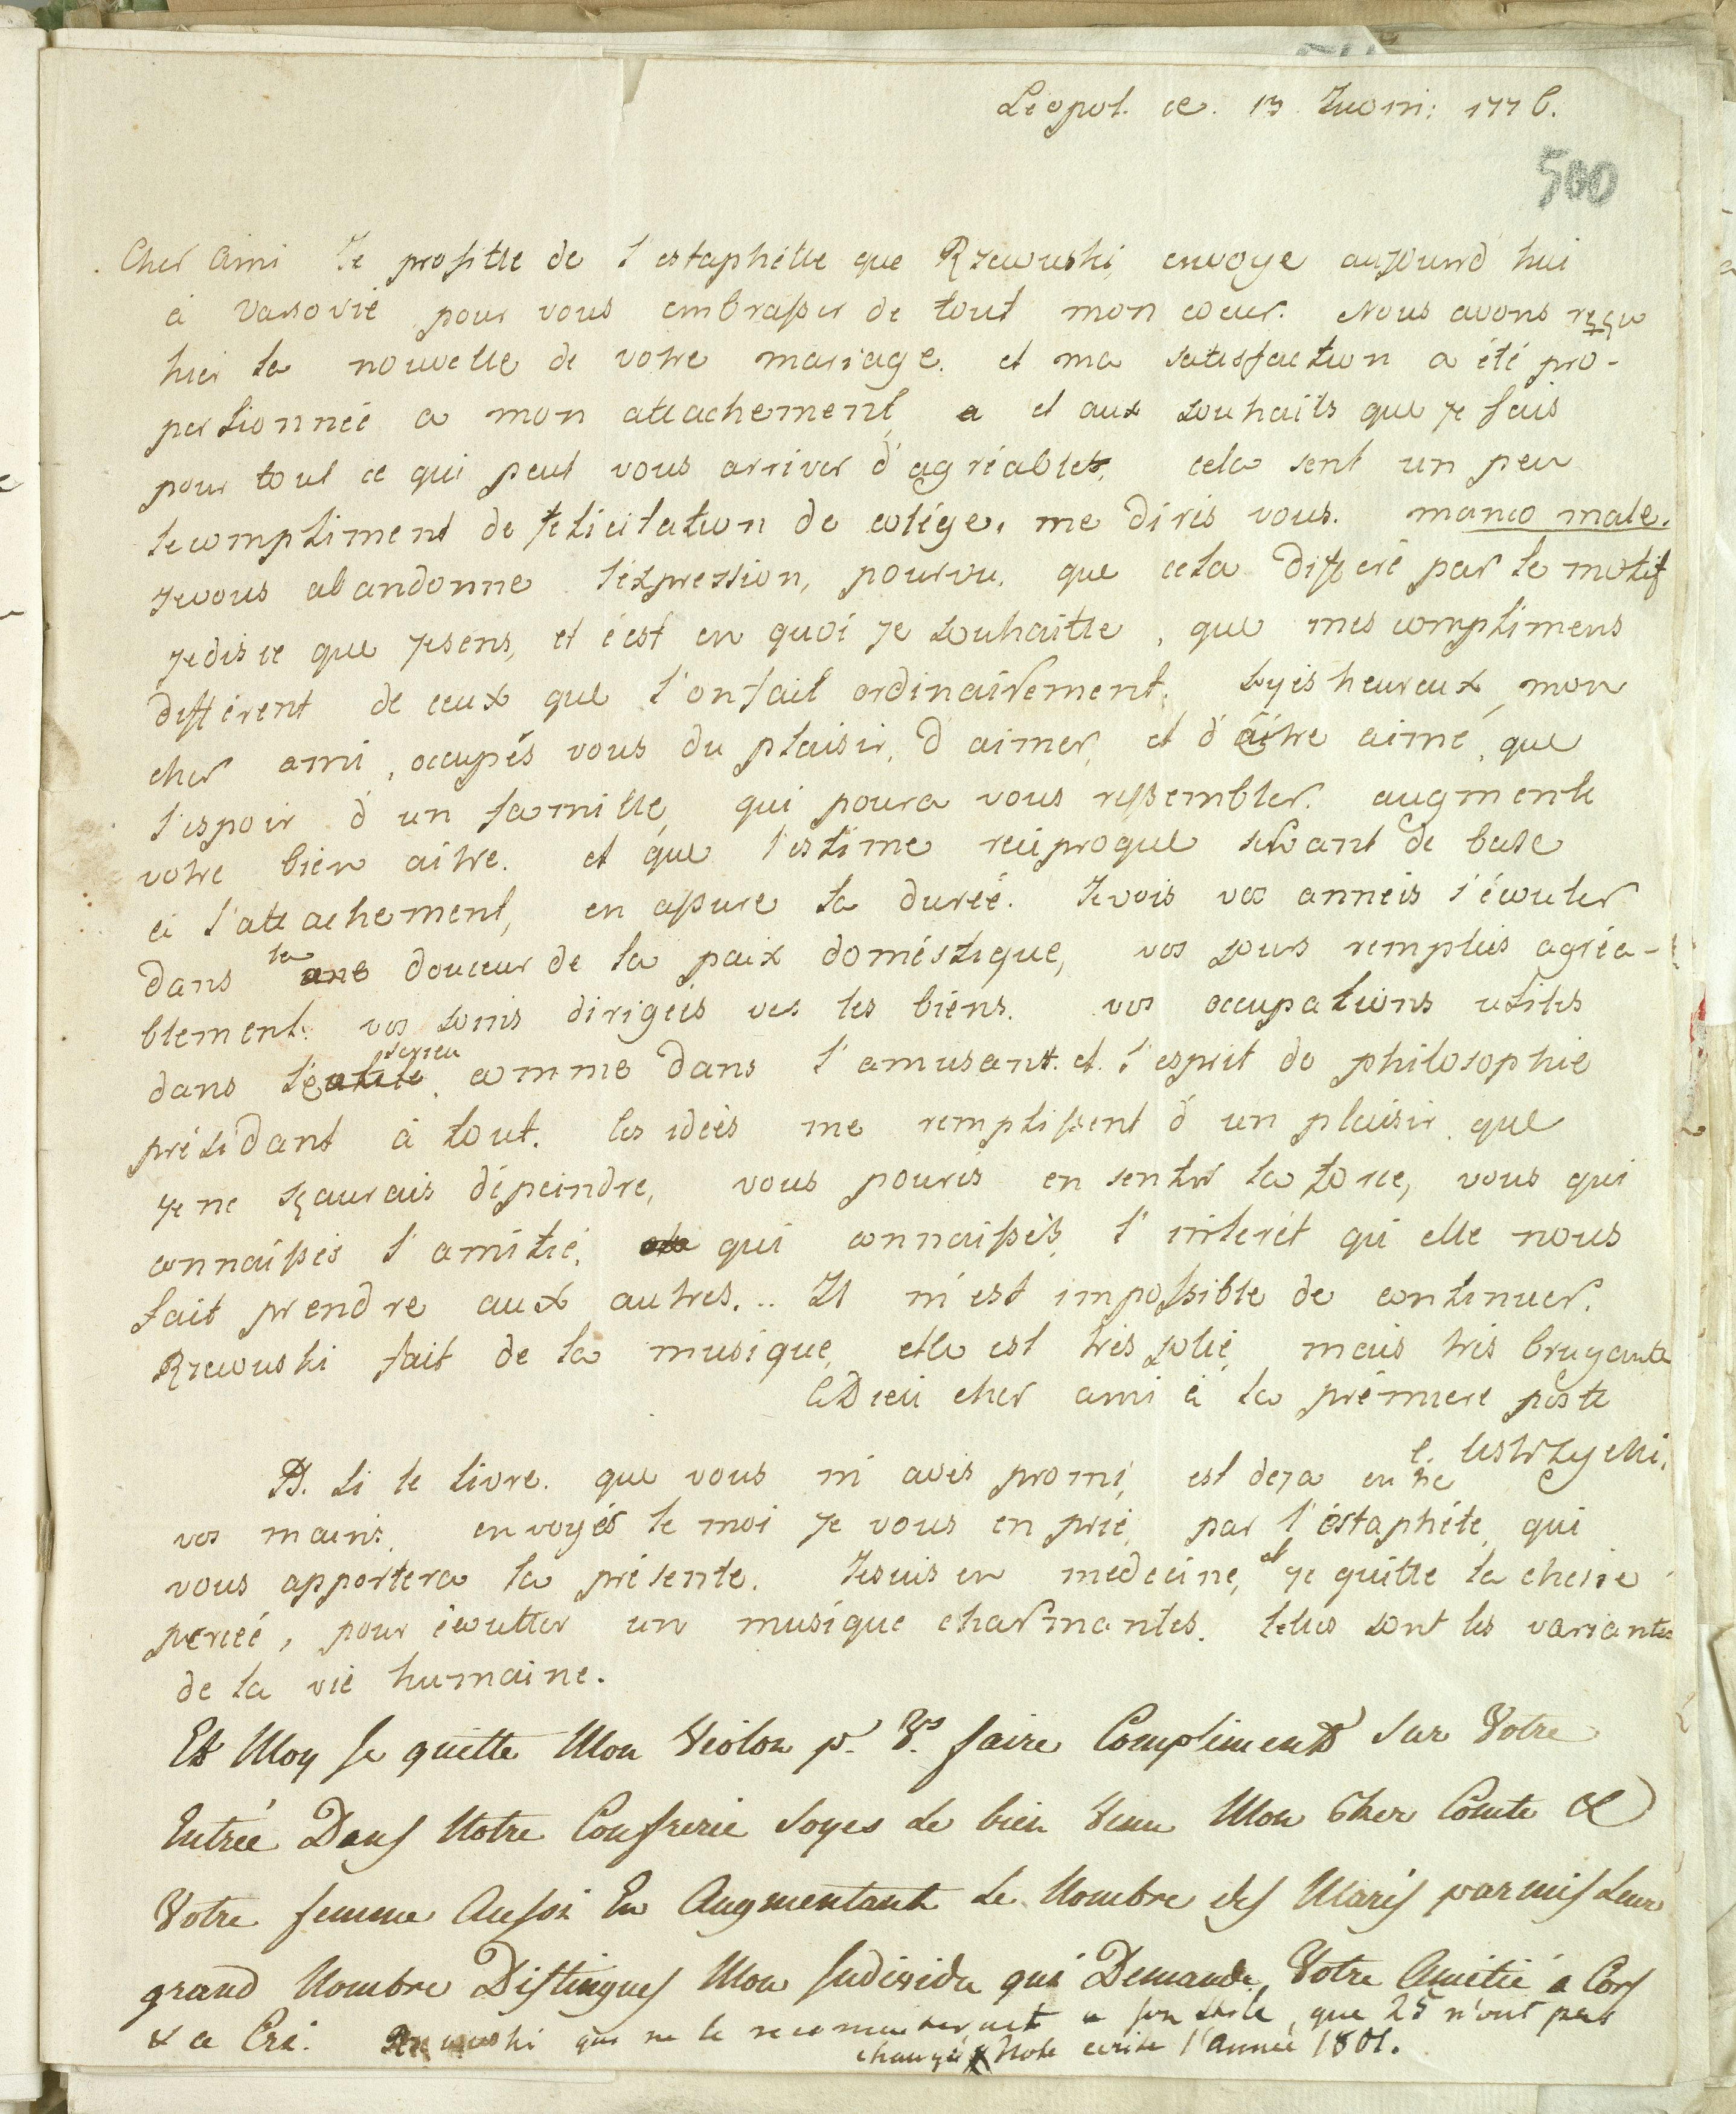 Léopol. ce. 13 Juoin: 1776.
500
Cher Ami Je profitte de l'estaphétte que Rzewuski, envoye aujourd'hui
à Varsovie pour vous embrasser de tout mon coeur. Nous avons reçu
hier la nouvelle de votre mariage. et ma satisfaction a été pro-
portionnée a mon attachement, et aux souhaits que je fais
pour tout ce qui peut vous arriver d'agréable. cela sent un peu
le compliment de félicitation de colége, me dirés vous. manco male.
je vous abandonne l'éxpression, pourvu, que cela différe par le motif
je dis ce que je sens, et c'est en quoi je souhaitte, que mes complimens
différent de ceux que l'on fait ordinairement. Soyés heureux, mon
cher ami, occupés vous du plaisir, d'aimer, et d'aitre aimé, que
l'espoir d'un famille, qui poura vous ressembler. augmente
votre bien aitre. et que l'estime reciproque servant de base
à l'attachement, en assure la durée. Je vois vos années s'écouler
dans la douceur de la paix doméstique, vos jours remplis agréa-
blement. vos soins dirigées ves les biens. vos occupations utiles
dans le serieu comme dans l'amusant. et l'esprit de philosophie
présidant à tout. Ces idées me remplissent d'un plaisir que
je ne sçaurais dépeindre, vous pourés en sentir la force, vous qui
connaissés l'amitié, qui connaissés l'interét qu'elle nous
fait prendre aux autres... Il m'est impossible de continuer.
Rzewuski fait de la musique, elle est très jolie, mais très bruyante
aDieu cher ami à la prémiere poste
C. Ustrzycki.
PS. Si le livre. que vous m'avés promi, est deja entre
vos mains, envoyés le moi je vous en prie, par l'éstaphéte, qui
vous apportera la présente. Je suis en medecine, et je quitte la chesse
percée, pour écoutter un musique charmantes. telles sont les variantes
de la vie humaine.
Et Moy Je quitte Mon Violon pr. Vs. faire Compliment sur Votre
Entrée Dans Notre Confrerie soyes le bien Venu Mon Cher Comte &
Votre femme Aussi En Augmentant Le Nombre des Maris parmis Leur
grand Nombre Distingues Mon Individu qui Demande, Votre Amitié à Cors
& a Cri. Rzewuski qui ne le reconnaiteroit a son stile, que 25 n'ont pas
changé Note ecrite l'année 1801.